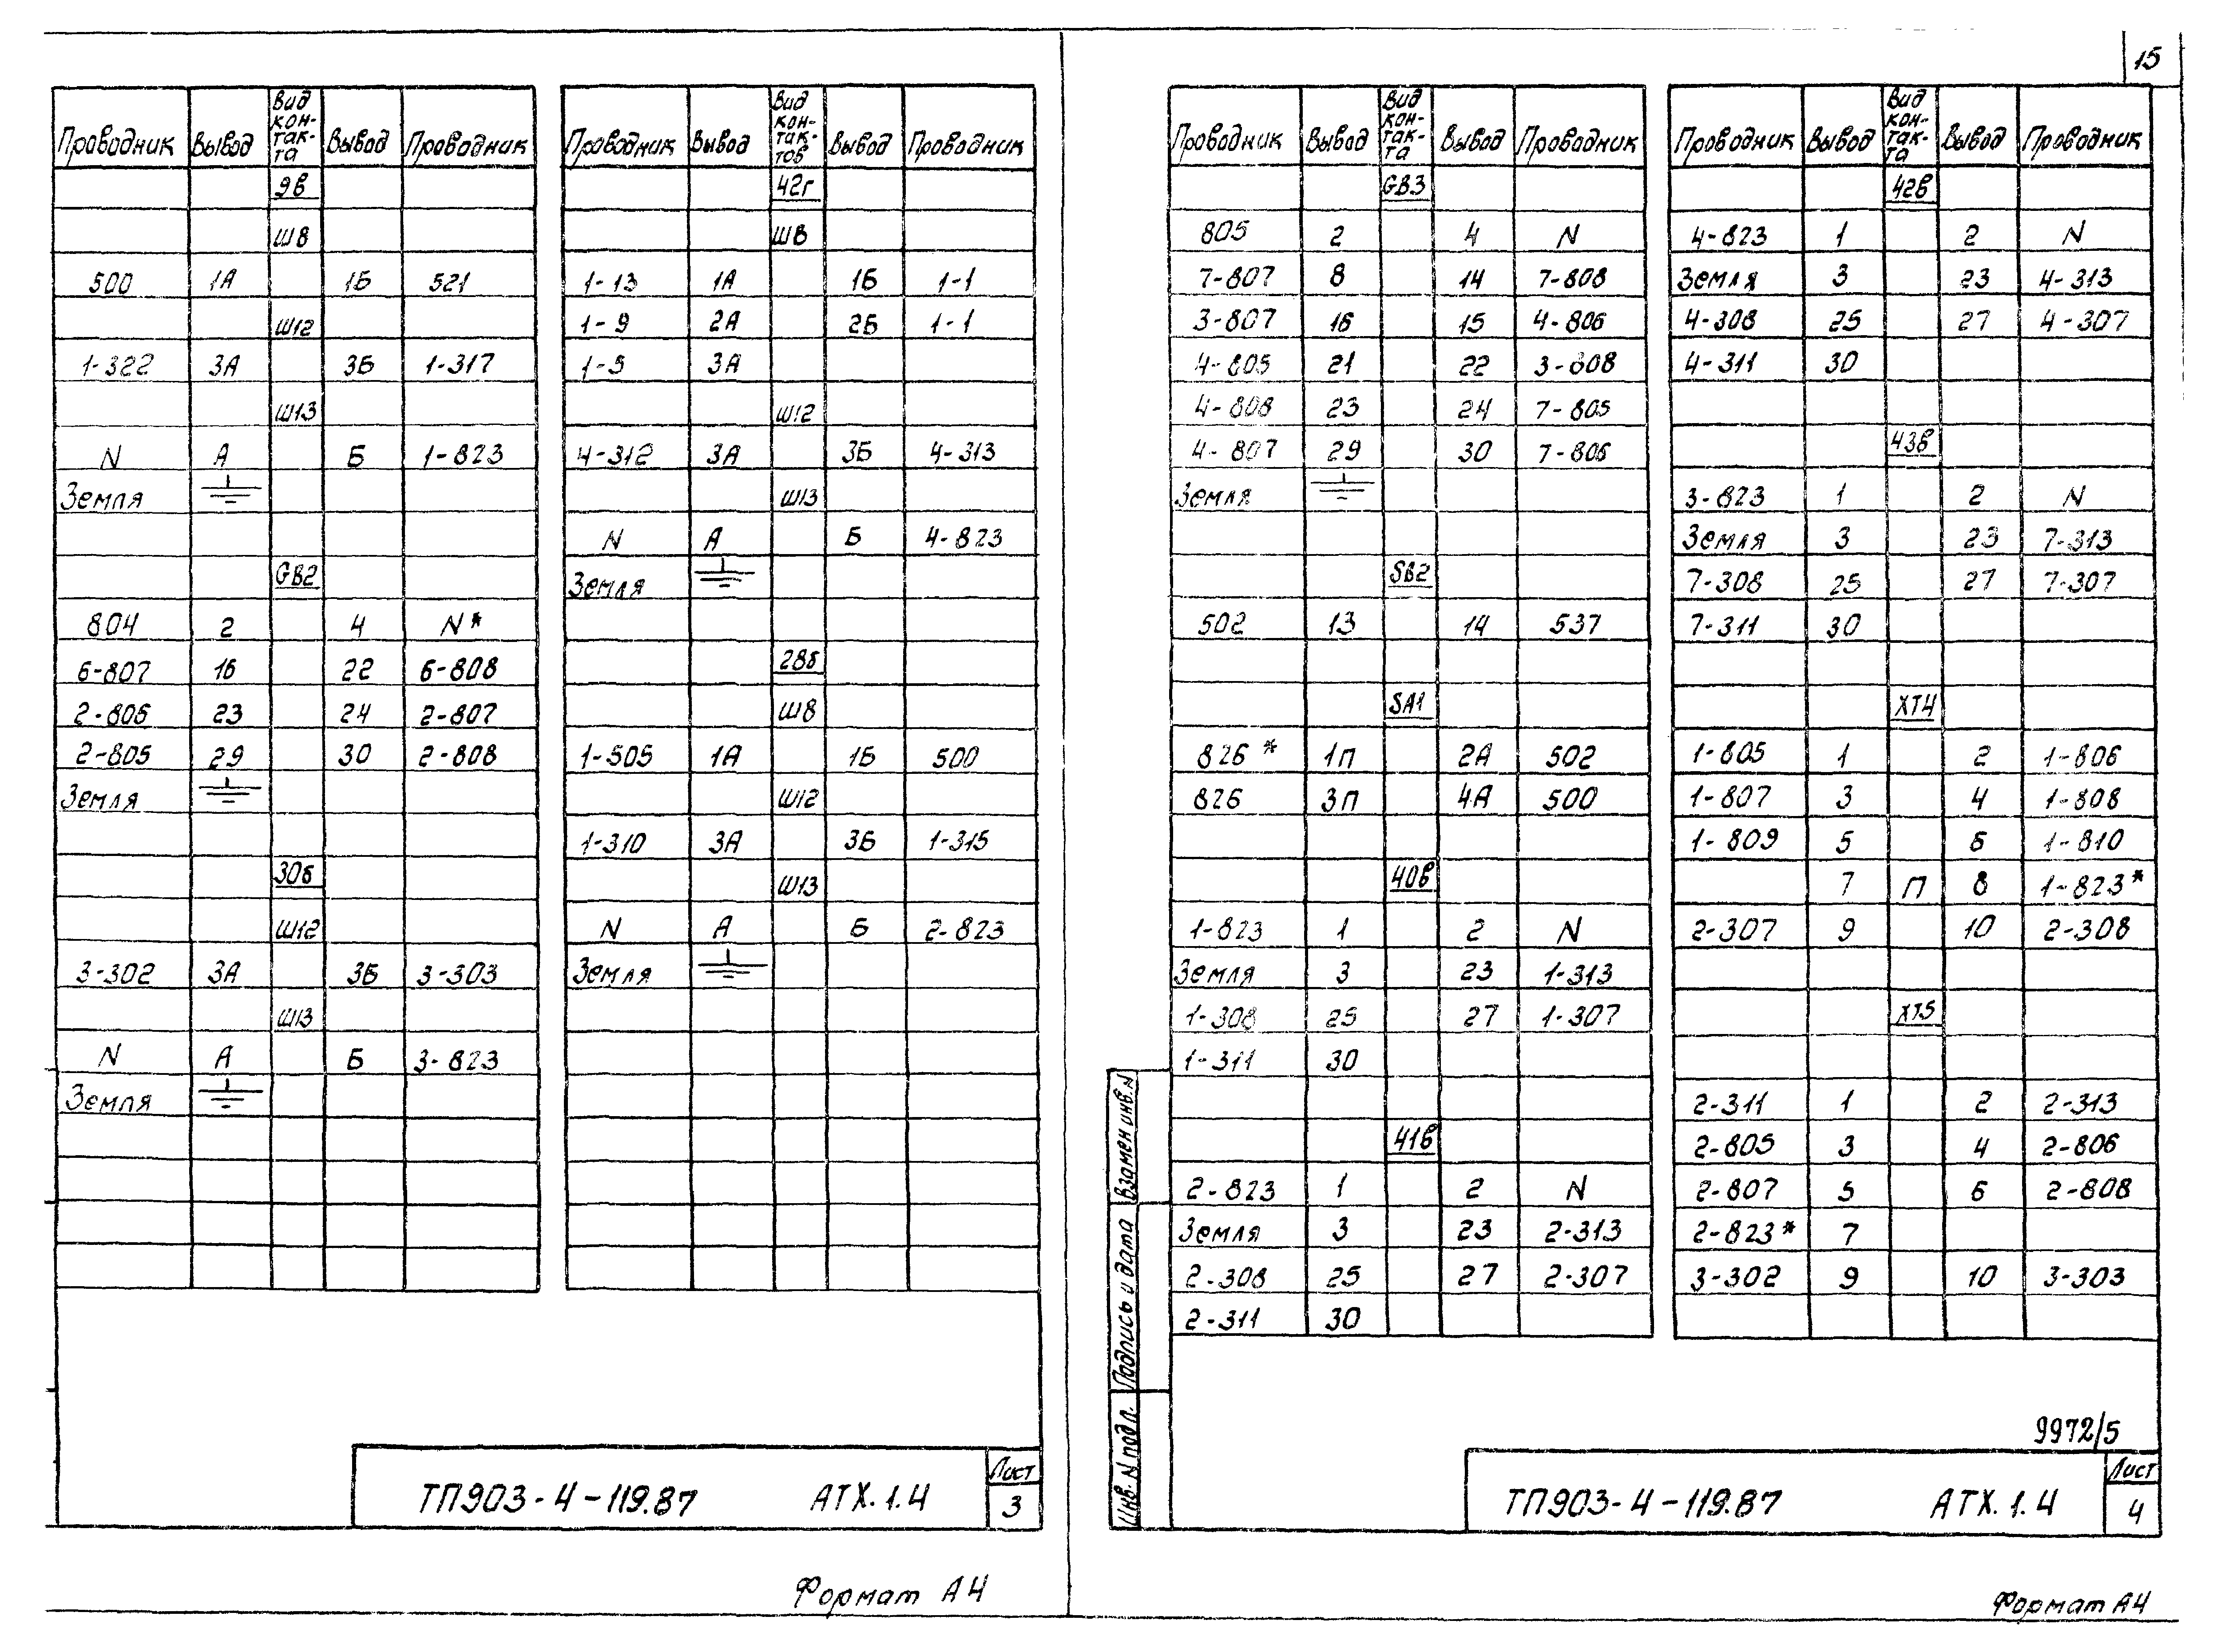 15
Проводник Вывод Вид кон- так- та Вывод Проводник
9в
Ш8
500 1А 1Б 521
Ш12
1-322 3А 3Б 1-317
Ш13
N А Б 1-823
Земля
GB2
804 2 4 N*
6-807 16 22 6-808
2-806 23 24 2-807
2-805 29 30 2-808
Земля
30б
Ш12
3-302 3А 3Б 3-303
Ш13
N А Б 3-823
Земля
Проводник Вывод Вид кон- так- тов Вывод Проводник
42г
Ш8
1-13 1А 1Б 1-1
1-9 2А 2Б 1-1
1-5 3А
Ш12
4-312 3А 3Б 4-313
Ш13
N А Б 4-823
Земля
28б
Ш8
1-505 1А 1Б 500
Ш12
1-310 3А 3Б 1-315
Ш13
N А Б 2-823
Земля
ТП903-4-119.87 АТХ.1.4
Лист
3
Формат А4
Проводник Вывод Вид кон- так- та Вывод Проводник
GB3
805 2 4 N
7-807 8 14 7-808
3-807 16 15 4-806
4-805 21 22 3-808
4-808 23 24 7-805
4-807 29 30 7-806
Земля
SB2
502 13 14 537
SA1
826* 1П 2А 502
826 3П 4А 500
40в
1-823 1 2 N
Земля 3 23 1-313
1-308 25 27 1-307
1-311 30
41в
2-823 1 2 N
Земля 3 23 2-313
2-308 25 27 2-307
2-311 30
Проводник Вывод Вид кон- так- та Вывод Проводник
42в
4-823 1 2 N
Земля 3 23 4-313
4-308 25 27 4-307
4-311 30
43в
3-823 1 2 N
Земля 3 23 7-313
7-308 25 27 7-307
7-311 30
ХТ4
1-805 1 2 1-806
1-807 3 4 1-808
1-809 5 6 1-810
7 П 8 1-823*
2-307 9 10 2-308
ХТ5
2-311 1 2 2-313
2-805 3 4 2-806
2-807 5 6 2-808
2-823* 7
3-302 9 10 3-303
Взамен инв.N
Подпись и дата
Инв. N подл.
9972/5
ТП903-4-119.87 АТХ.1.4
Лист
4
Формат А4